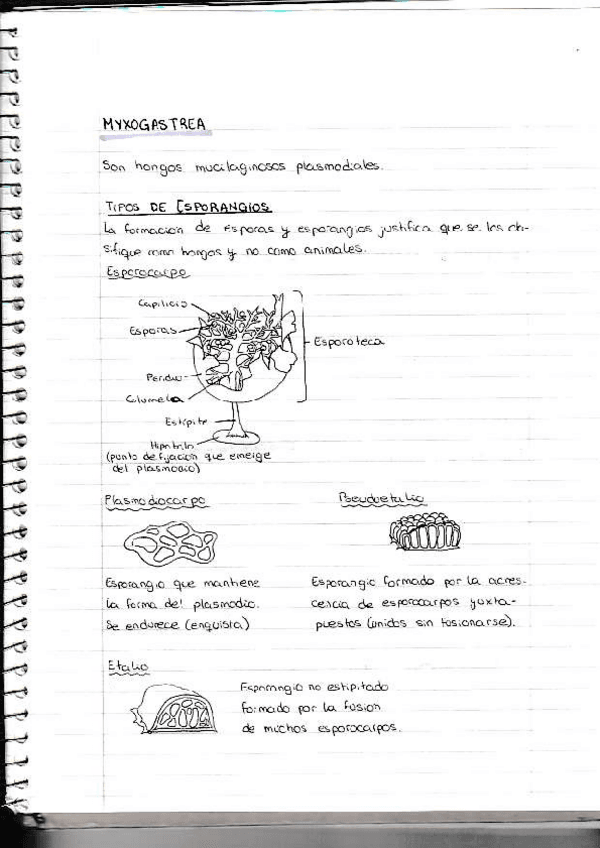 MYXOGASTREA
Son hongos mucilaginosos plasmodiales.
TIPOS DE ESPORANGIOS
La formación de esporas y esporangios justifica que se les cla-
sifique como hongos y no como animales.
Esporocarpo
Capilicio
Esporas
Esporoteca
Peridio
Columela
Estípite
Hipotalo
(punto de fijación que emerge
del plasmodio)
Plasmodiocarpo
Pseudoetalio
Esporangio que mantiene
la forma del plasmodio.
Se endurece (enquista)
Esporangio formado por la acres-
cencia de esporocarpos yuxta-
puestos (unidos sin fusionarse).
Etalio
Esporangio no estipitado
formado por la fusion
de muchos esporocarpos.